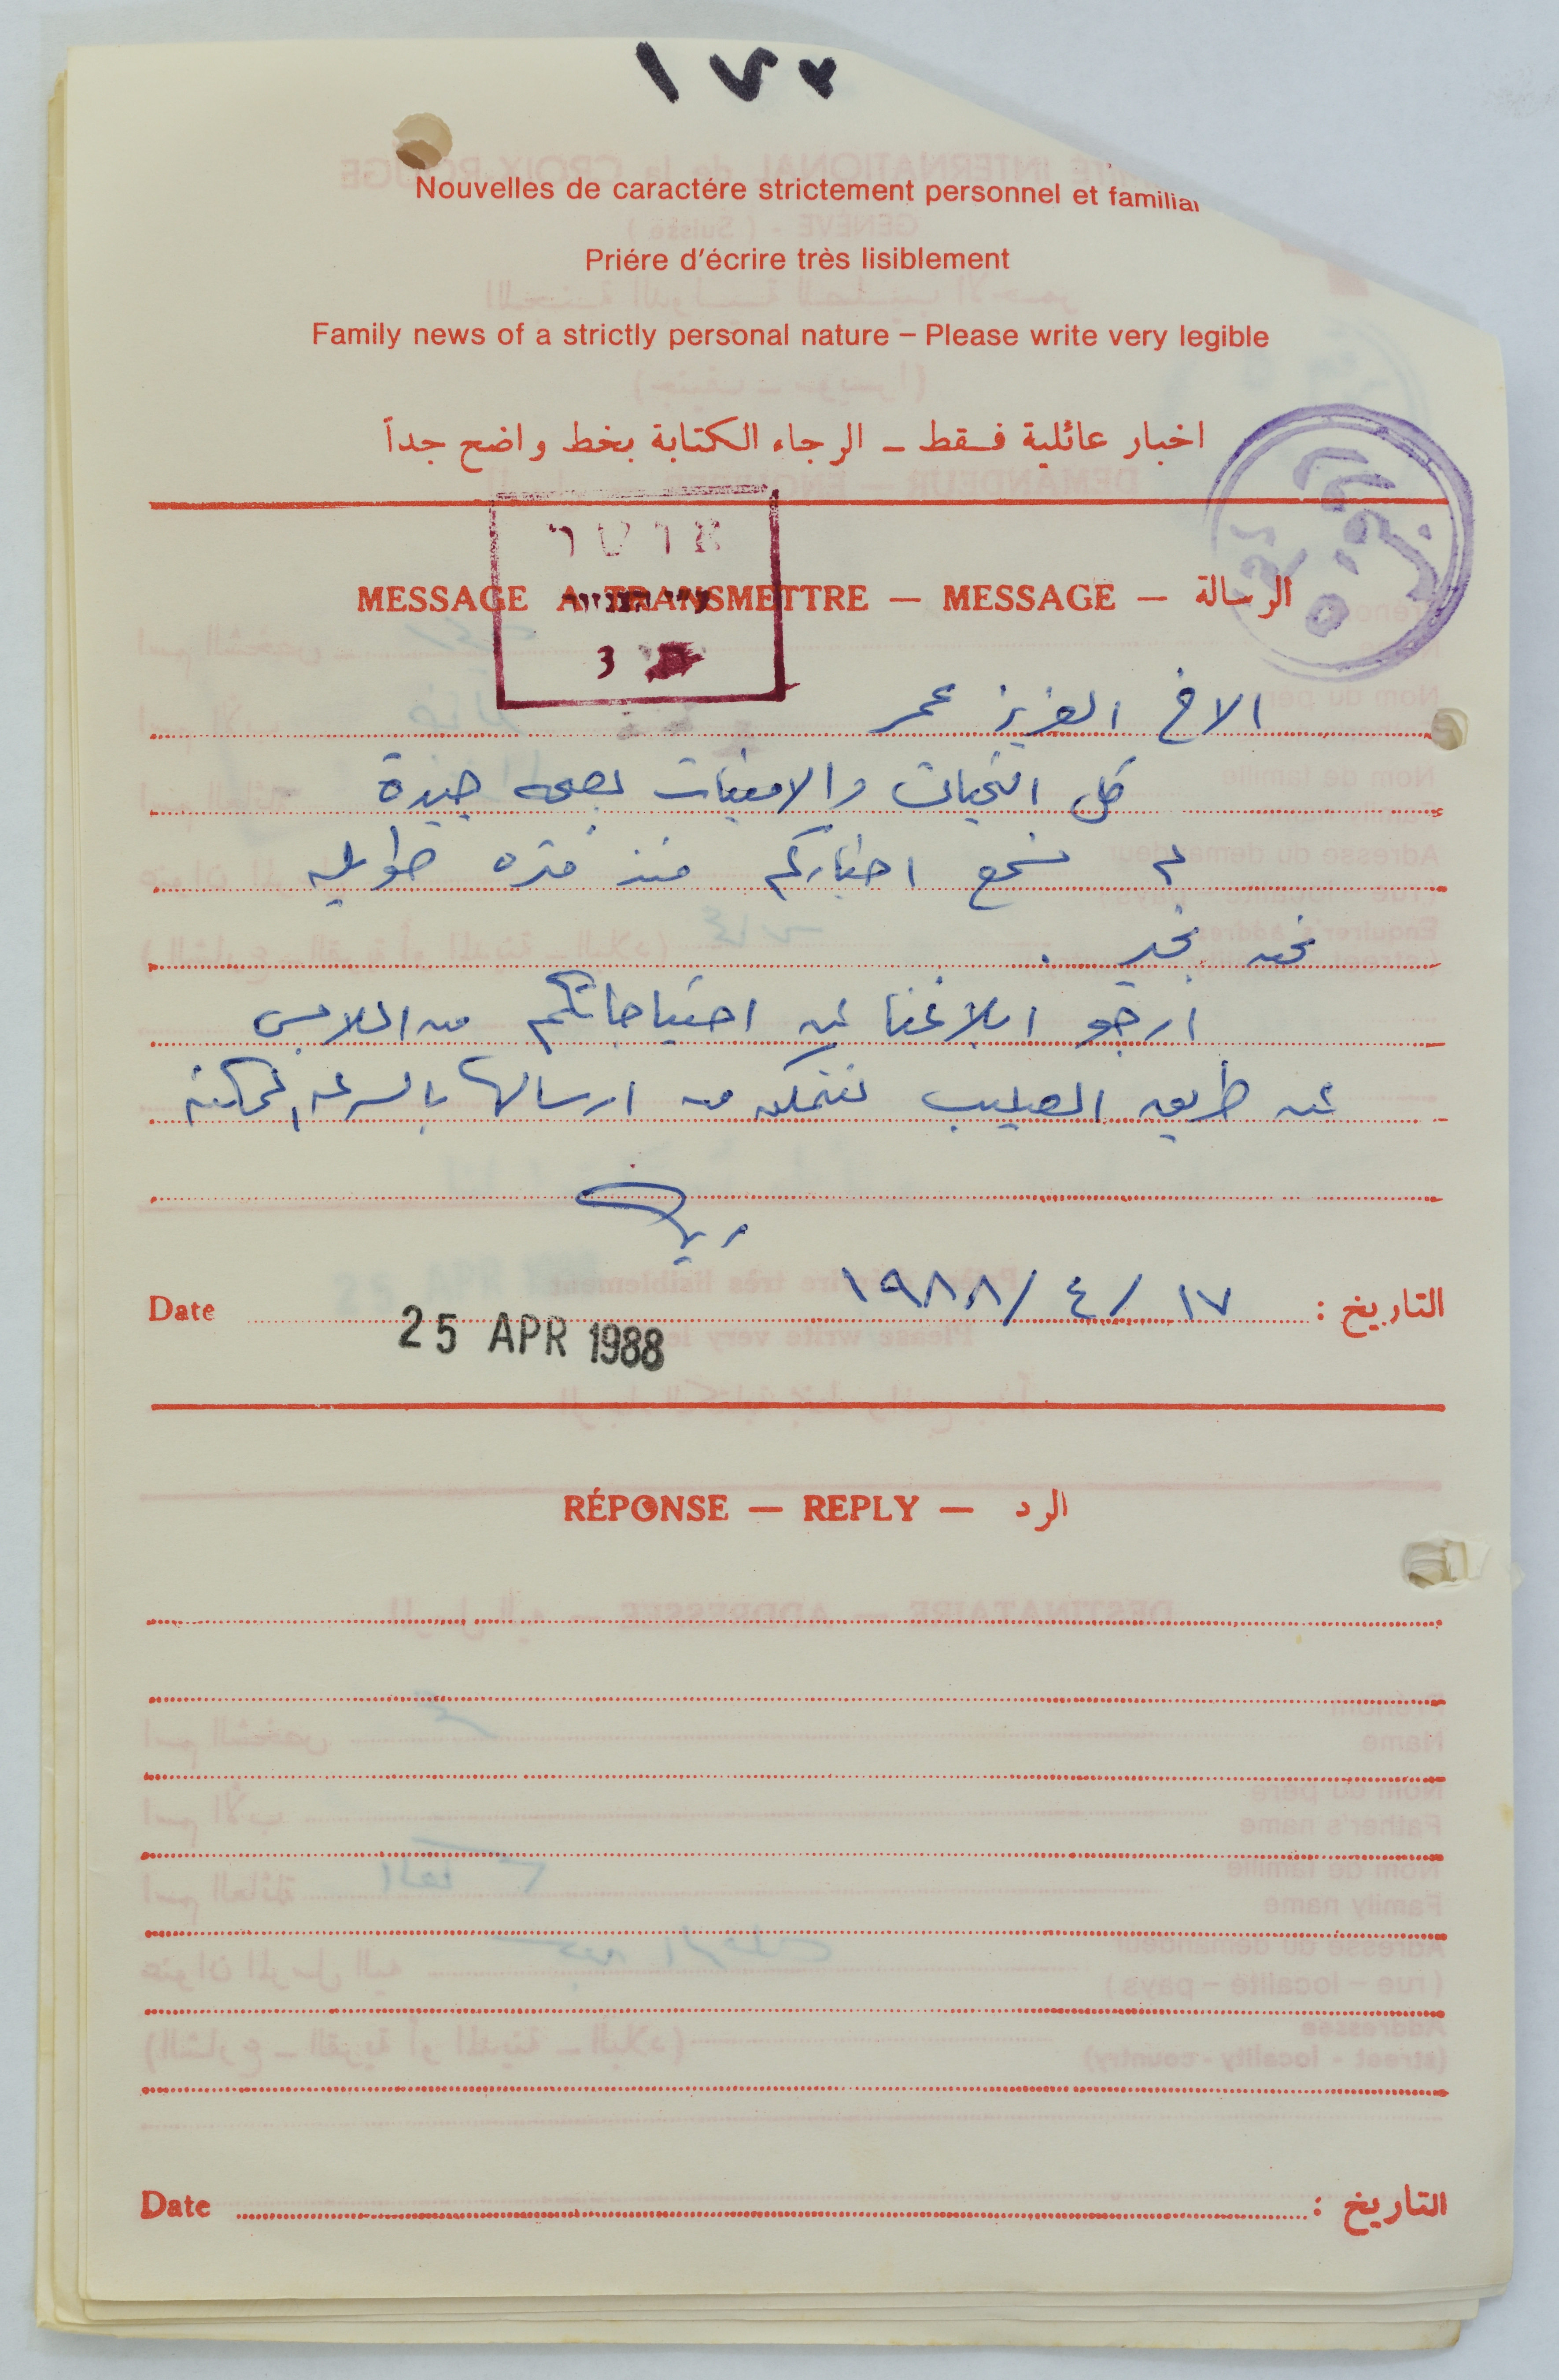 ١٧٧
Nouvelles de caractére strictement personnel et familial
Priére d'écrire très lisiblement
Family news of a strictly personal nature – Please write very legible
اخبار عائلية فقط – الرجاء الكتابة بخط واضح جداً
MESSAGE A TRANSMETTRE — MESSAGE — الرسالة
الاخ العزيز عمر
كل التحيات والامنيات بصحه جيدة
لم نسمع اخباركم منذ فتره طويله
نحن بخير .
ارجو ابلاغنا عن احتياجاتكم من الملابس
عن طريق الصليب لنتمكن من ارسالها بالسرعه الممكنه
التاريخ : ١٧ / ٤ / ١٩٨٨ Date
25 APR 1988
RÉPONSE — REPLY — الرد
التاريخ : Date